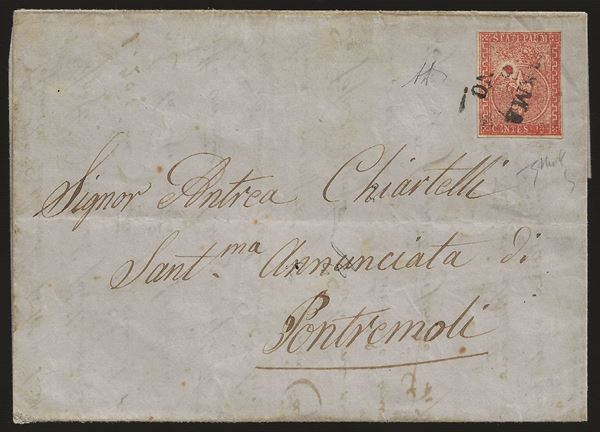 STATI PARM
CENTES
Signor Antrea Chiartelli
Sant.ma Annunciata di
Pontremoli